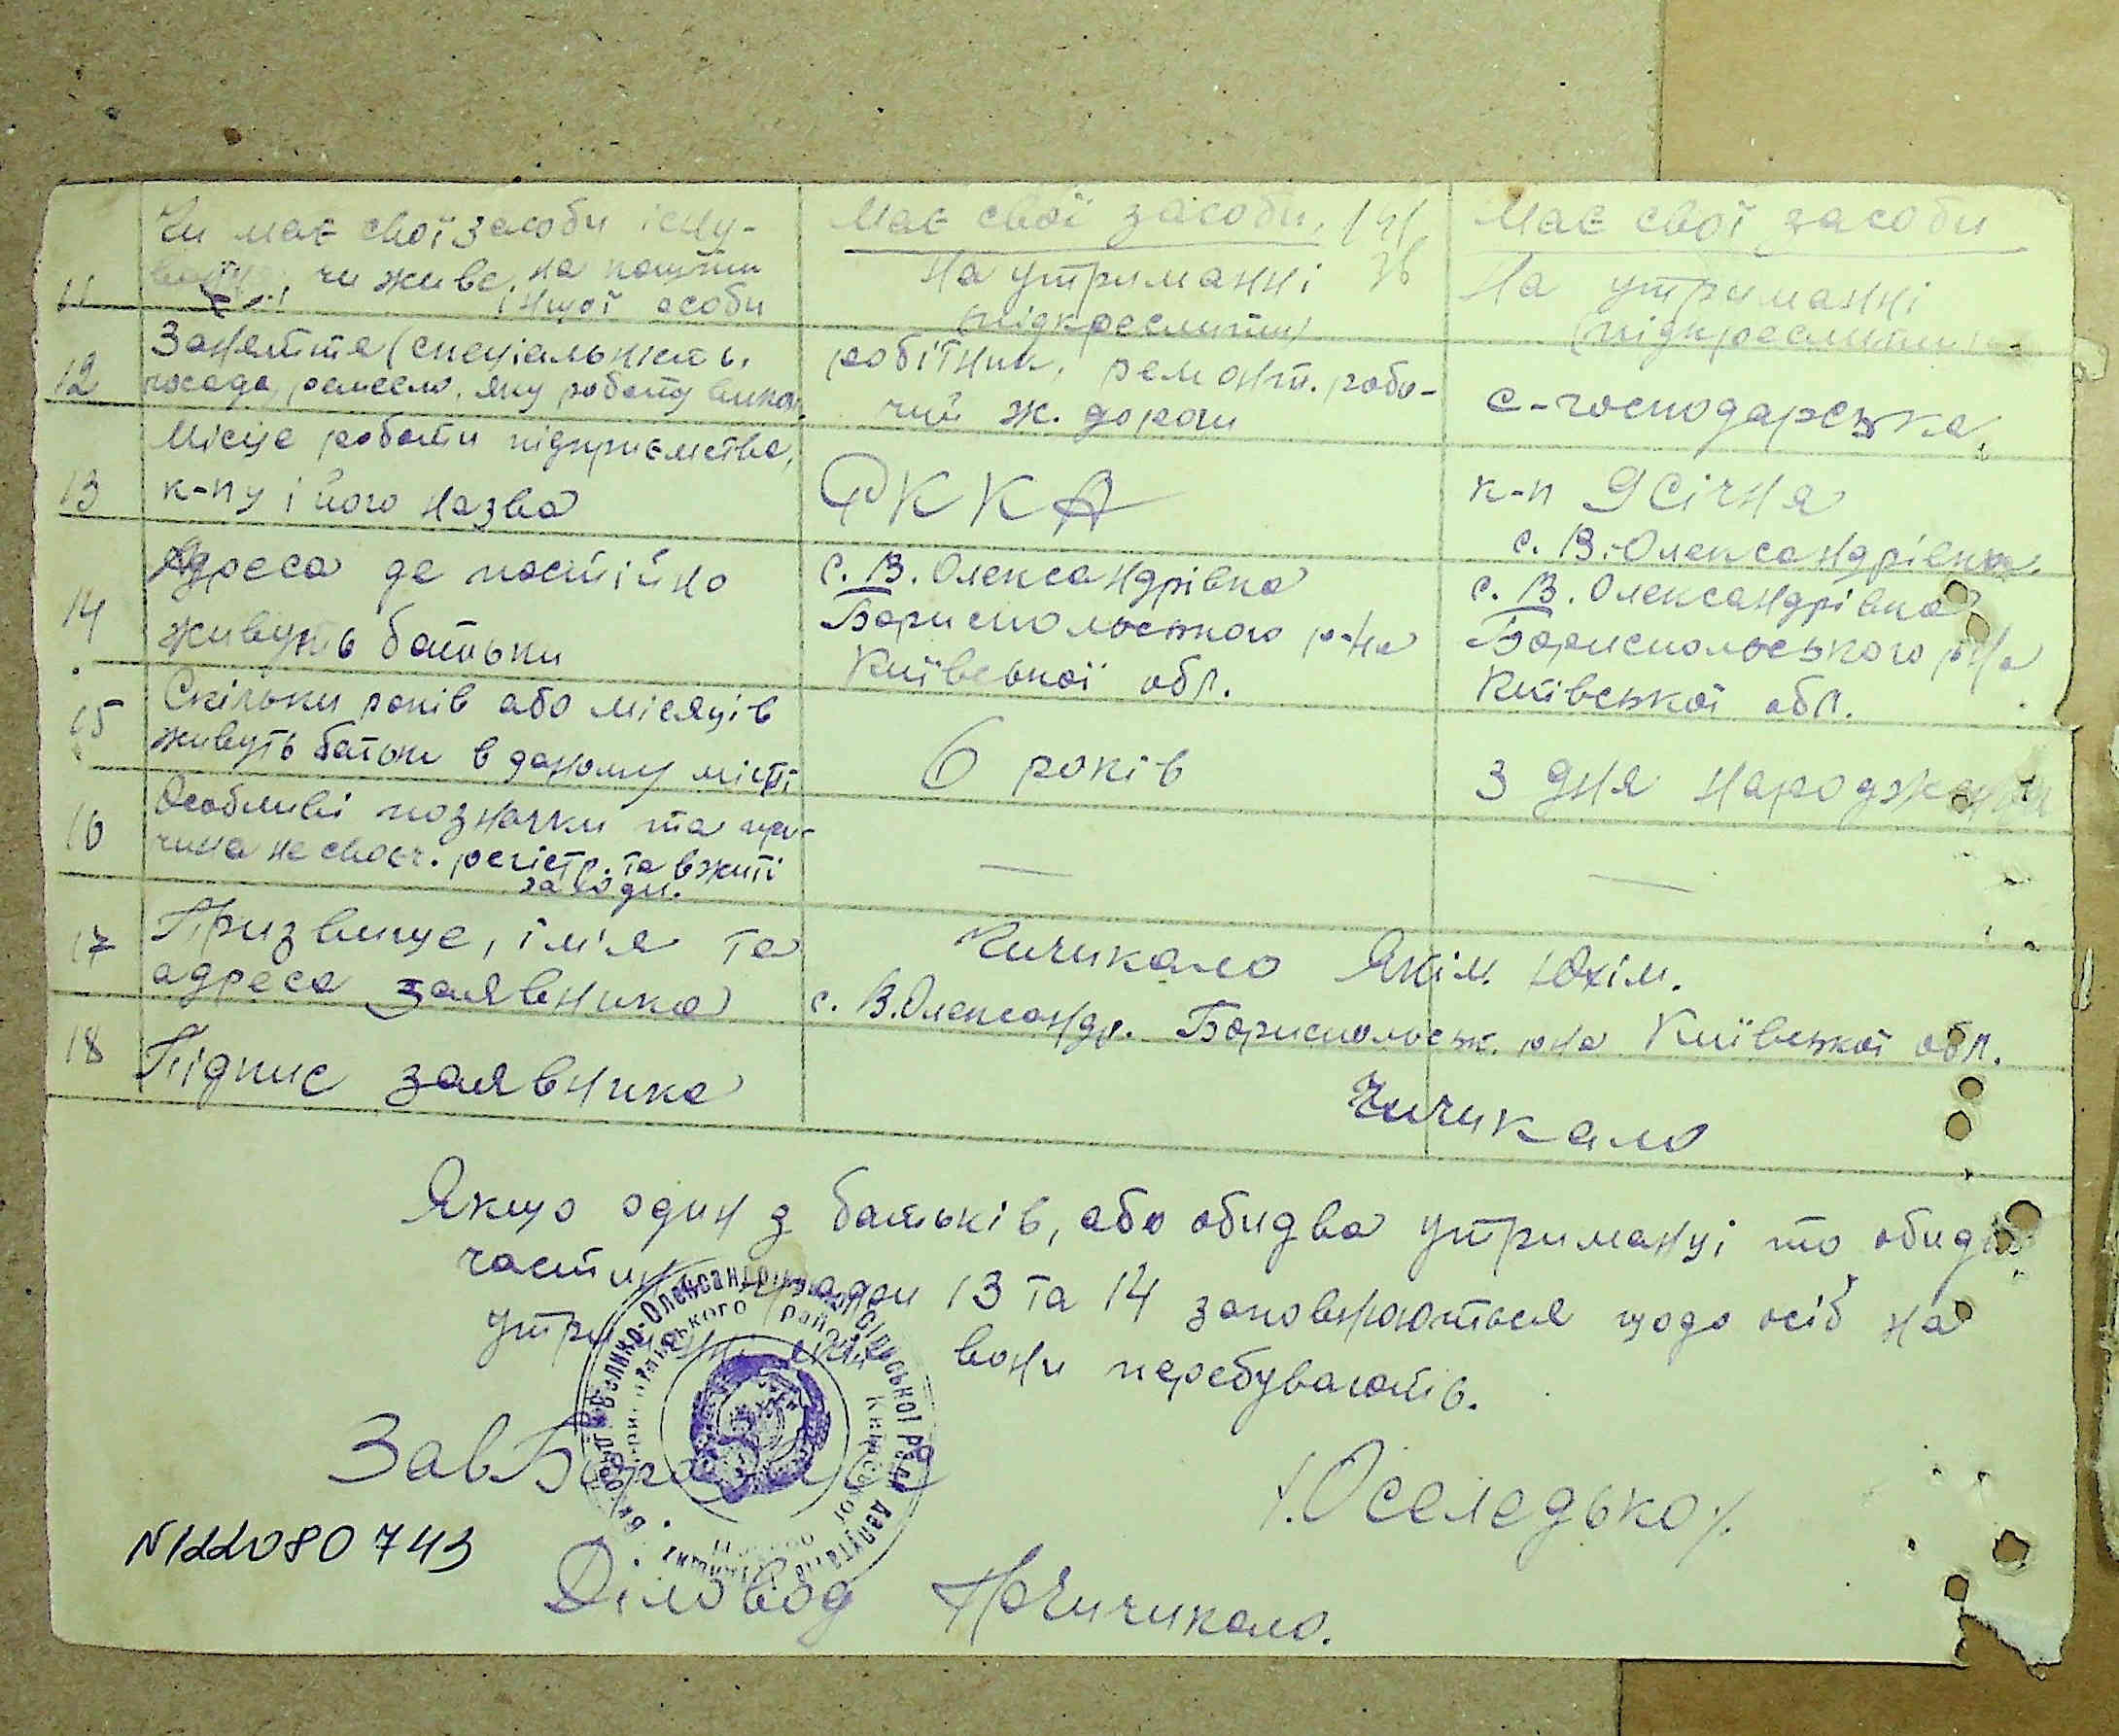 Чи має свої засоби існу-
чи живе на кошти
іншої особи
11
Має свої засоби,
На утриманні
(підкреслити)
Має свої засоби
На утриманні
(підкреслити)
12
Заняття (спеціальність,
посада, ремесло, яку роботу викон.
робітник, ремонт. робо-
чий ж. дороги
с-господарська
13
Місце роботи підприємства,
к-пу і його назва
РККА
к-п 9 Січня
с. В.-Олександрівка
14
Адреса де постійно
живуть батьки
с. В. Олександрівка
Бориспольського р-на
Київської обл.
с. В. Олександрівка
Бориспольського р-на
Київської обл.
15
Скільки років або місяців
живуть батьки в даному місті
6 років
З дня народження
16
Особливі позначки та при-
чина не своєч. регістр. та вжиті
заходи.
—
—
17
Призвище, ім'я та
адреса заявника
Чичикало Яким Юхим.
с. В.Олександр. Бориспольськ. р-на Київської обл.
18
Підпис заявника
Чичикало
Якщо один з батьків, або обидва утриманці то обидві
частини графи 13 та 14 заповнюються щодо осіб на
утриманні яких вони перебувають.
ЗавБюро
/.Оселедько/.
N122080743
Діловод
Чичикало.